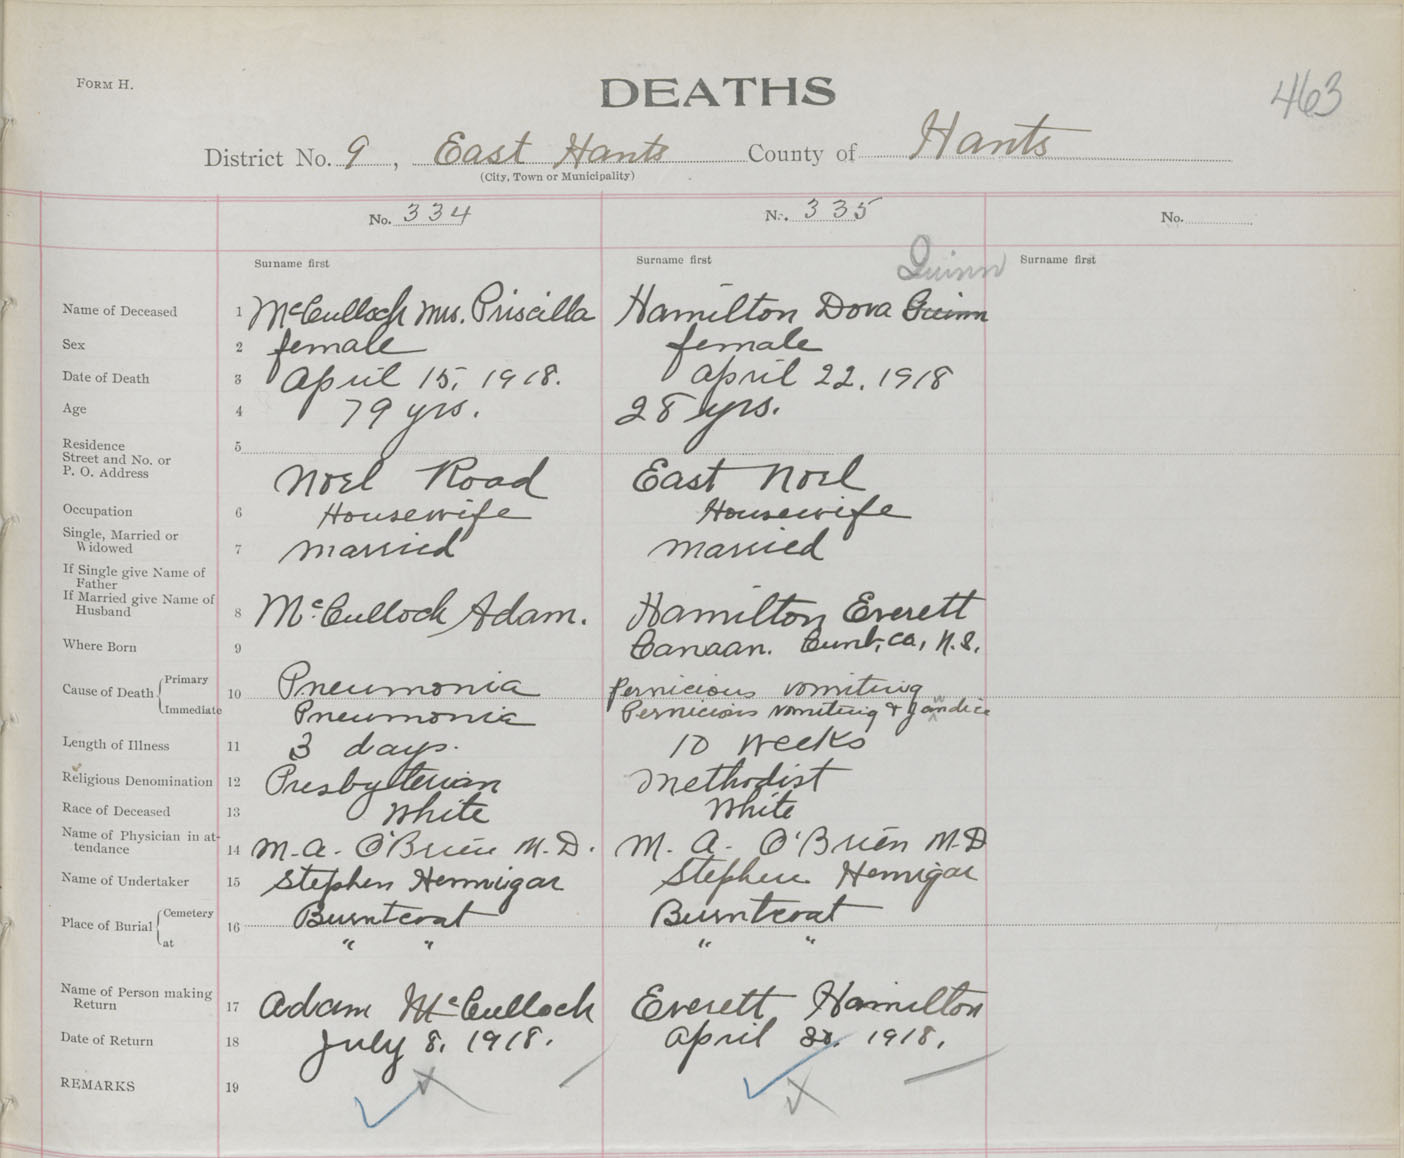 FORM H.
DEATHS
463
District No. 9, East Hants County of Hants
(City, Town or Municipality)
No. 334 No. 335 No.
Surname first Surname first Quinn Surname first
Name of Deceased 1 McCulloch Mrs. Priscilla Hamilton Dora Quinn
Sex 2 female female
Date of Death 3 April 15, 1918. April 22, 1918
Age 4 79 yrs. 28 yrs.
Residence 5
Street and No. or
P. O. Address Noel Road East Noel
Occupation 6 Housewife Housewife
Single, Married or
Widowed 7 Married Married
If Single give Name of
Father
If Married give Name of
Husband 8 McCulloch Adam. Hamilton Everett
Where Born 9 Canaan. Cumb. Co, N.S.
Cause of Death Primary 10 Pneumonia Pernicious vomiting
Immediate Pneumonia Pernicious vomiting & Jaundice
Length of Illness 11 3 days. 10 weeks
Religious Denomination 12 Presbyterian Methodist
Race of Deceased 13 White White
Name of Physician in at-
tendance 14 M. A. O'Brien M.D. M. A. O'Brien M.D
Name of Undertaker 15 Stephen Hennigar Stephen Hennigar
Place of Burial Cemetery 16 Burntcoat Burntcoat
at " " " "
Name of Person making
Return 17 Adam McCulloch Everett Hamilton
Date of Return 18 July 8, 1918. April 1918.
REMARKS 19